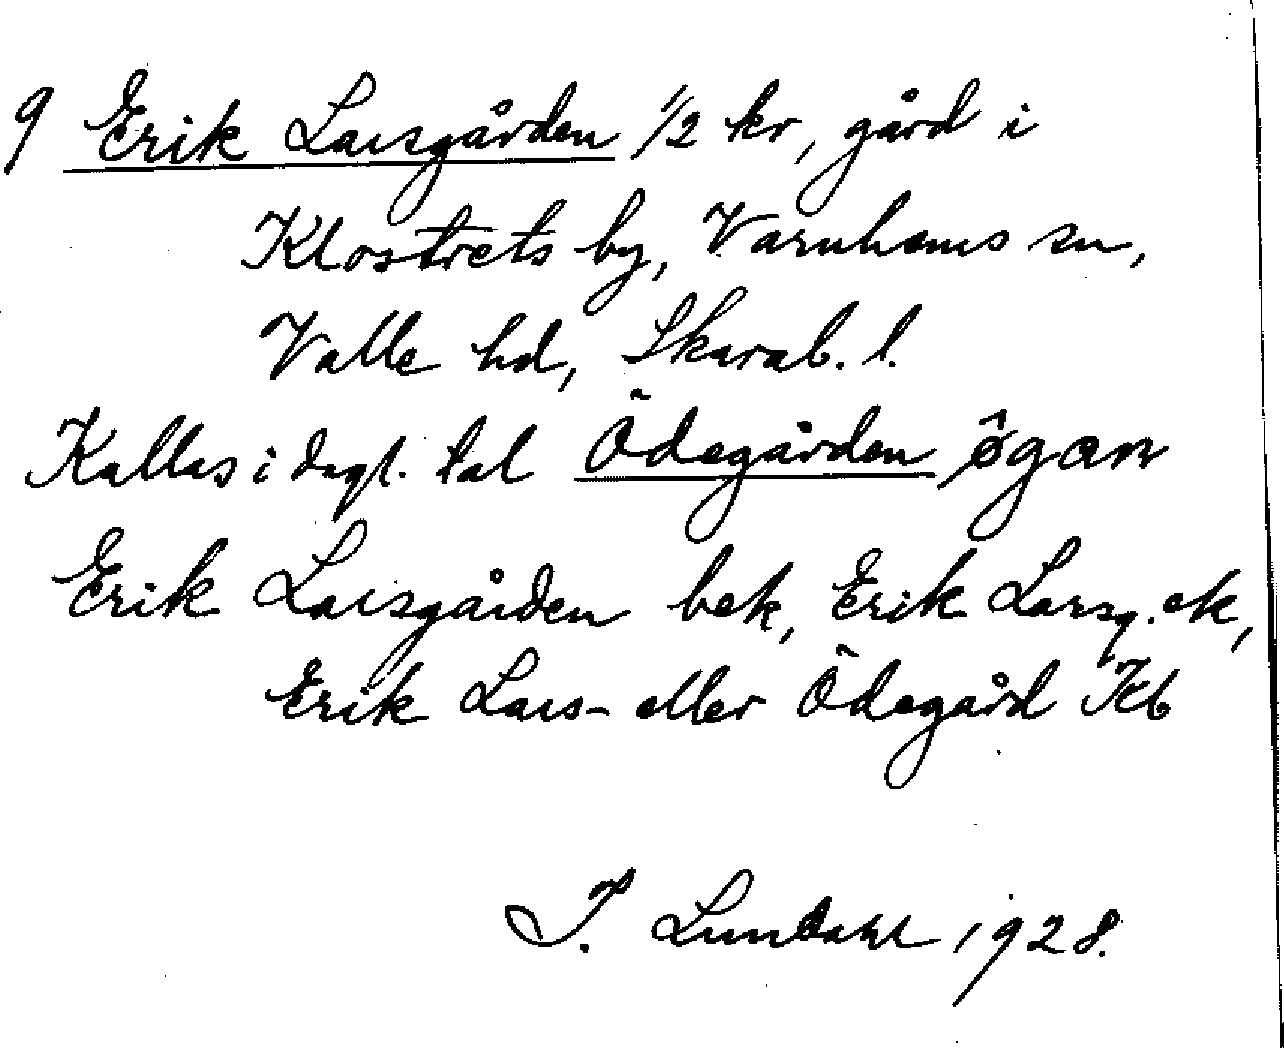 9 Erik Larsgården 1/2 kr, gård i
Klostrets by, Varnhems sn,
Valle hd, Skarab. l.
Kallas i dagl. tal Ödegården ôgan
Erik Larsgården bek, Erik Larsg. ek,
Erik Lars- eller Ödegård Kb
I. Lundahl 1928.